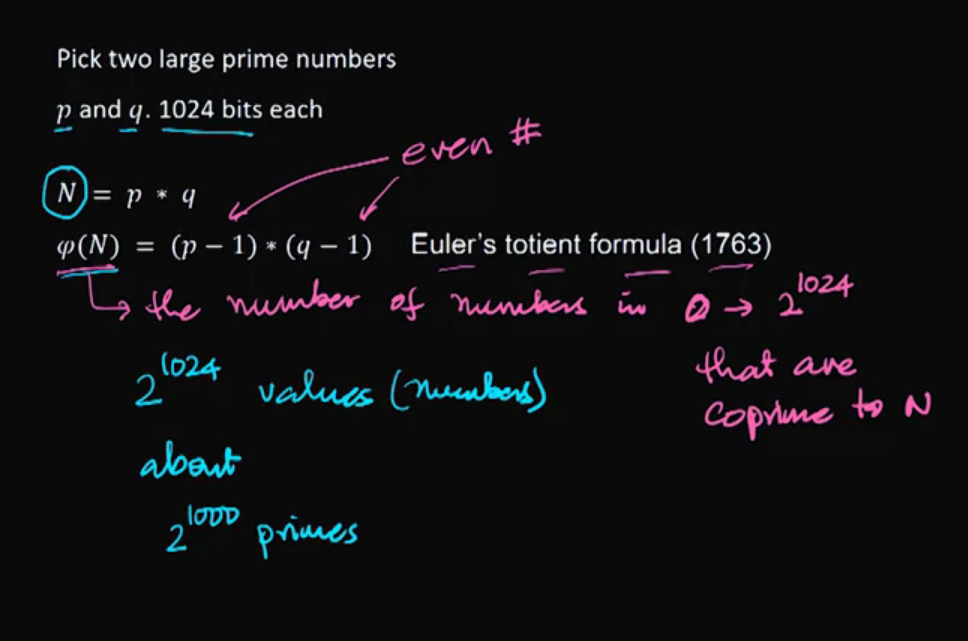 Pick two large prime numbers
p and q. 1024 bits each
even #
N = p * q
φ(N) = (p − 1) * (q − 1) Euler's totient formula (1763)
↳ the number of numbers in 0 → 2^1024
that are
coprime to N
2^1024 values (numbers)
about
2^1000 primes